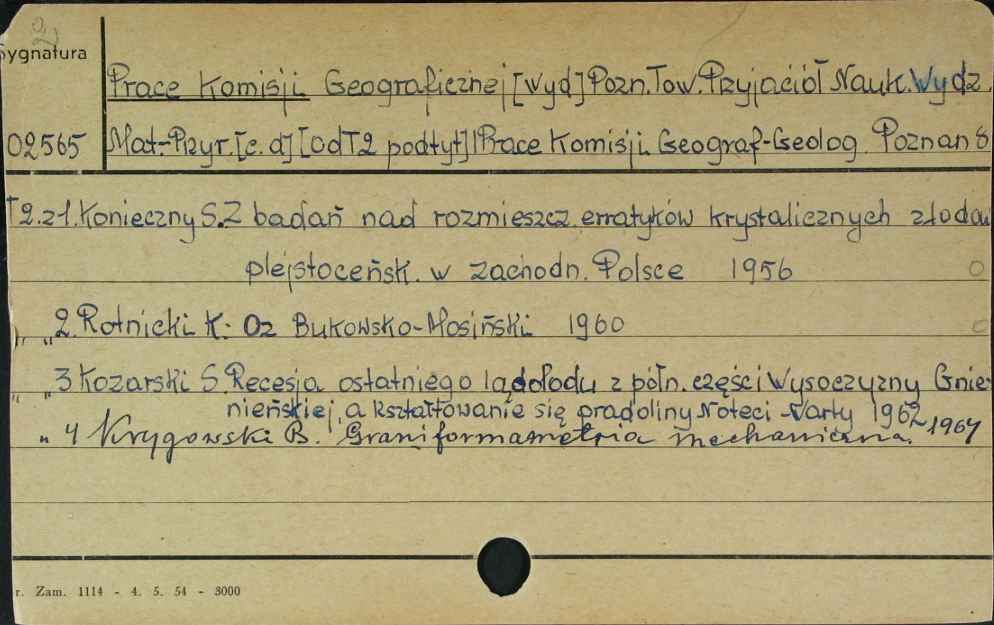 Sygnatura
Prace Komisji Geograficznej [Wyd] Pozn. Tow. Przyjaciół Nauk. Wydz.
02565 Mat.-Przyr. [c.d] [Od T2 podtyt] Prace Komisji Geograf-Geolog. Poznań 8
T2.z1. Konieczny S. Z badań nad rozmieszcz. erratyków krystalicznych zlodow
plejstoceńsk. w zachodn. Polsce 1956
" 2. Rotnicki K. Oz Bukowsko-Mosiński 1960
" " 3 Kozarski S Recesja ostatniego lądolodu z półn. części Wysoczyzny Gnie-
nieńskiej, a kształtowanie się pradoliny Noteci-Warty 1962
" 4 Krygowski B. Graniformametria mechaniczna. 1964
r. Zam. 1114 - 4. 5. 54 - 3000